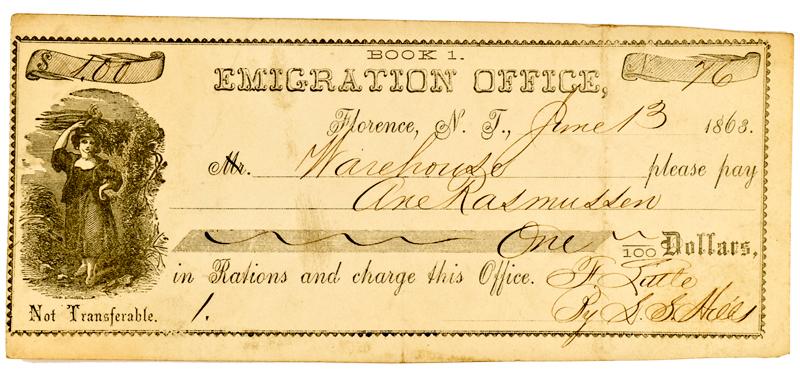 BOOK 1.
$ 1,00
EMIGRATION OFFICE,
N 76
Florence, N. T., June 13 1863.
Mr. Warehouse please pay
Ane Rasmussen
One /100 Dollars,
in Rations and charge this Office. F. Little
Not Transferable. 1. By S. S. Hills